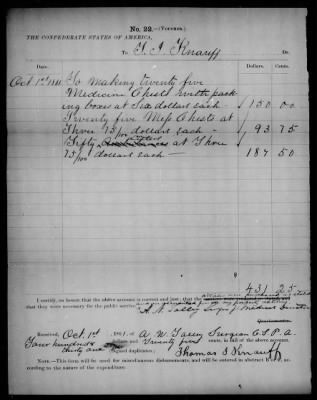 No. 22.—(Voucher.)
THE CONFEDERATE STATES OF AMERICA,
To T. I. Knauff Dr.
Date. Dollars. Cents.
Oct 1st 1861 To making twenty five
Medicine Chests with pack
ing boxes at Six dollars each — 150 00
Twenty five Mess Chests at
Three 75/100 dollars each — 93 75
Fifty at Three
75/100 dollars each — 187 50
431 25
I certify, on honor, that the above account is correct and just; that the
that they were necessary for the public service
A. N. Talley Surgn &
Received, Oct 1st 1861, of A. N. Talley Surgeon C.S.P.A.
Four hundred & thirty one dollars and Twenty five cents, in full of the above account.
(Signed duplicates) Thomas I Knauff
NOTE.—This form will be used for miscellaneous disbursements, and will be entered in abstract B or C, ac-
cording to the nature of the expenditure.